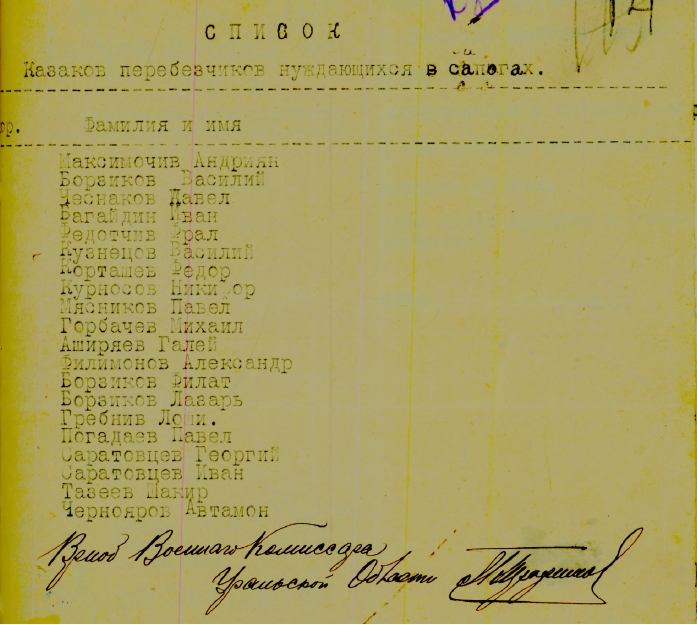 СПИСОК
Казаков перебезчиков нуждающихся в сапогах.
Фамилия и имя
Максимочив Андриян
Борзиков Василий
Чеснаков Павел
Багайдин Иван
Федотчив Фрал
Кузнецов Василий
Корташев Федор
Курносов Никифор
Мясников Павел
Горбачев Михаил
Аширяев Галей
Филимонов Александр
Борзиков Филат
Борзиков Лазарь
Гребнив
Погадаев Павел
Саратовцев Георгий
Саратовцев Иван
Тазеев Шакир
Чернояров Автамон
Военнаго Комиссара
Уральской Области